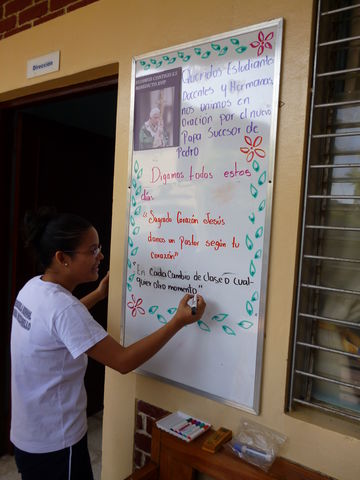 Dirección
ROGUEMOS CONTIGO S.S
BENEDICTO XVI
Queridos Estudiantes
Docentes y Hermanas
nos unimos en
oración por el nuevo
Papa Sucesor de
Pedro
Digamos todos estos
días
"Sagrado Corazón Jesús
danos un Pastor según tu
corazón"
"En cada Cambio de clase o cual-
quier otro momento"